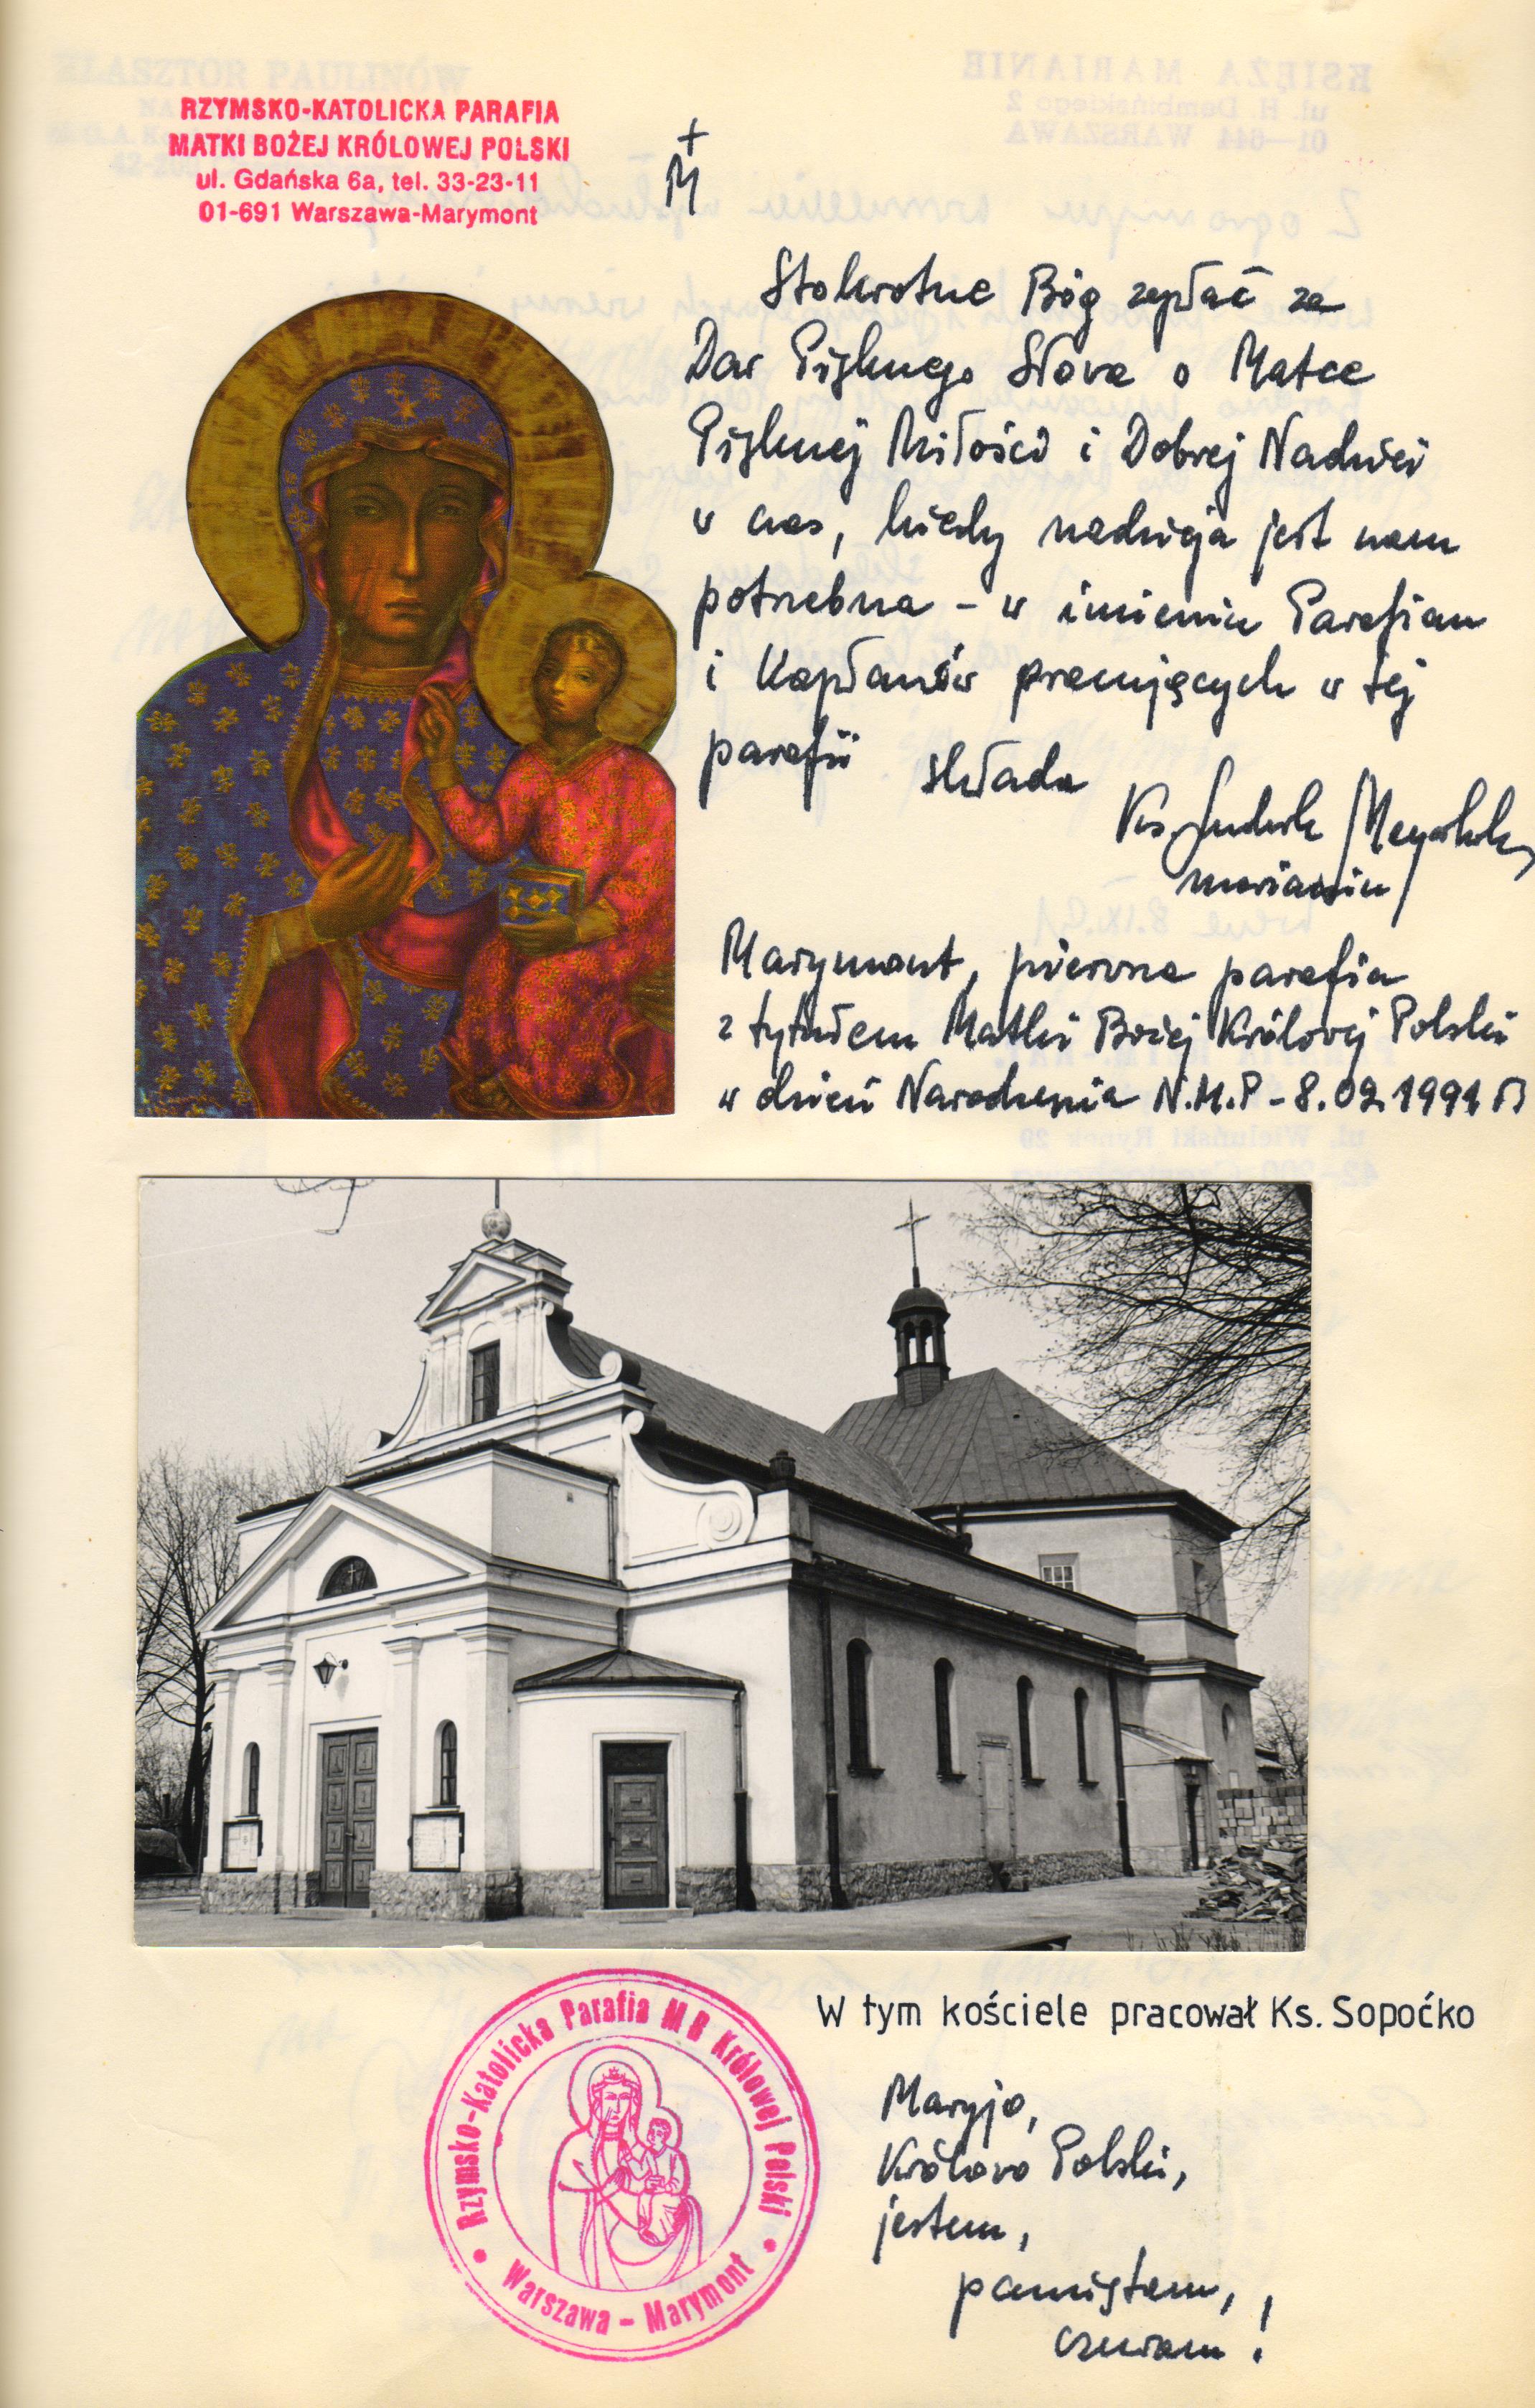 RZYMSKO-KATOLICKA PARAFIA
MATKI BOŻEJ KRÓLOWEJ POLSKI
ul. Gdańska 6a, tel. 33-23-11
01-691 Warszawa-Marymont
KSIĘŻA MARIANIE
ul. H. Dembińskiego 2
01-644 WARSZAWA
KLASZTOR PAULINÓW
M
Stokrotne Bóg zapłać za
Dar Pięknego Słowa o Matce
Pięknej Miłości i Dobrej Nadziei
w czas, kiedy nadzieja jest nam
potrzebna - w imieniu Parafian
i Kapłanów pracujących w tej
parafii składa
Ks.
marianin
Marymont, pierwsza parafia
z tytułem Matki Bożej Królowej Polski
w dzień Narodzenia N.M.P - 8.09.1991 r
W tym kościele pracował Ks. Sopoćko
Rzymsko-Katolicka Parafia M B Królowej Polski
Warszawa - Marymont
Maryjo,
Królowo Polski,
jestem,
pamiętam,
czuwam!